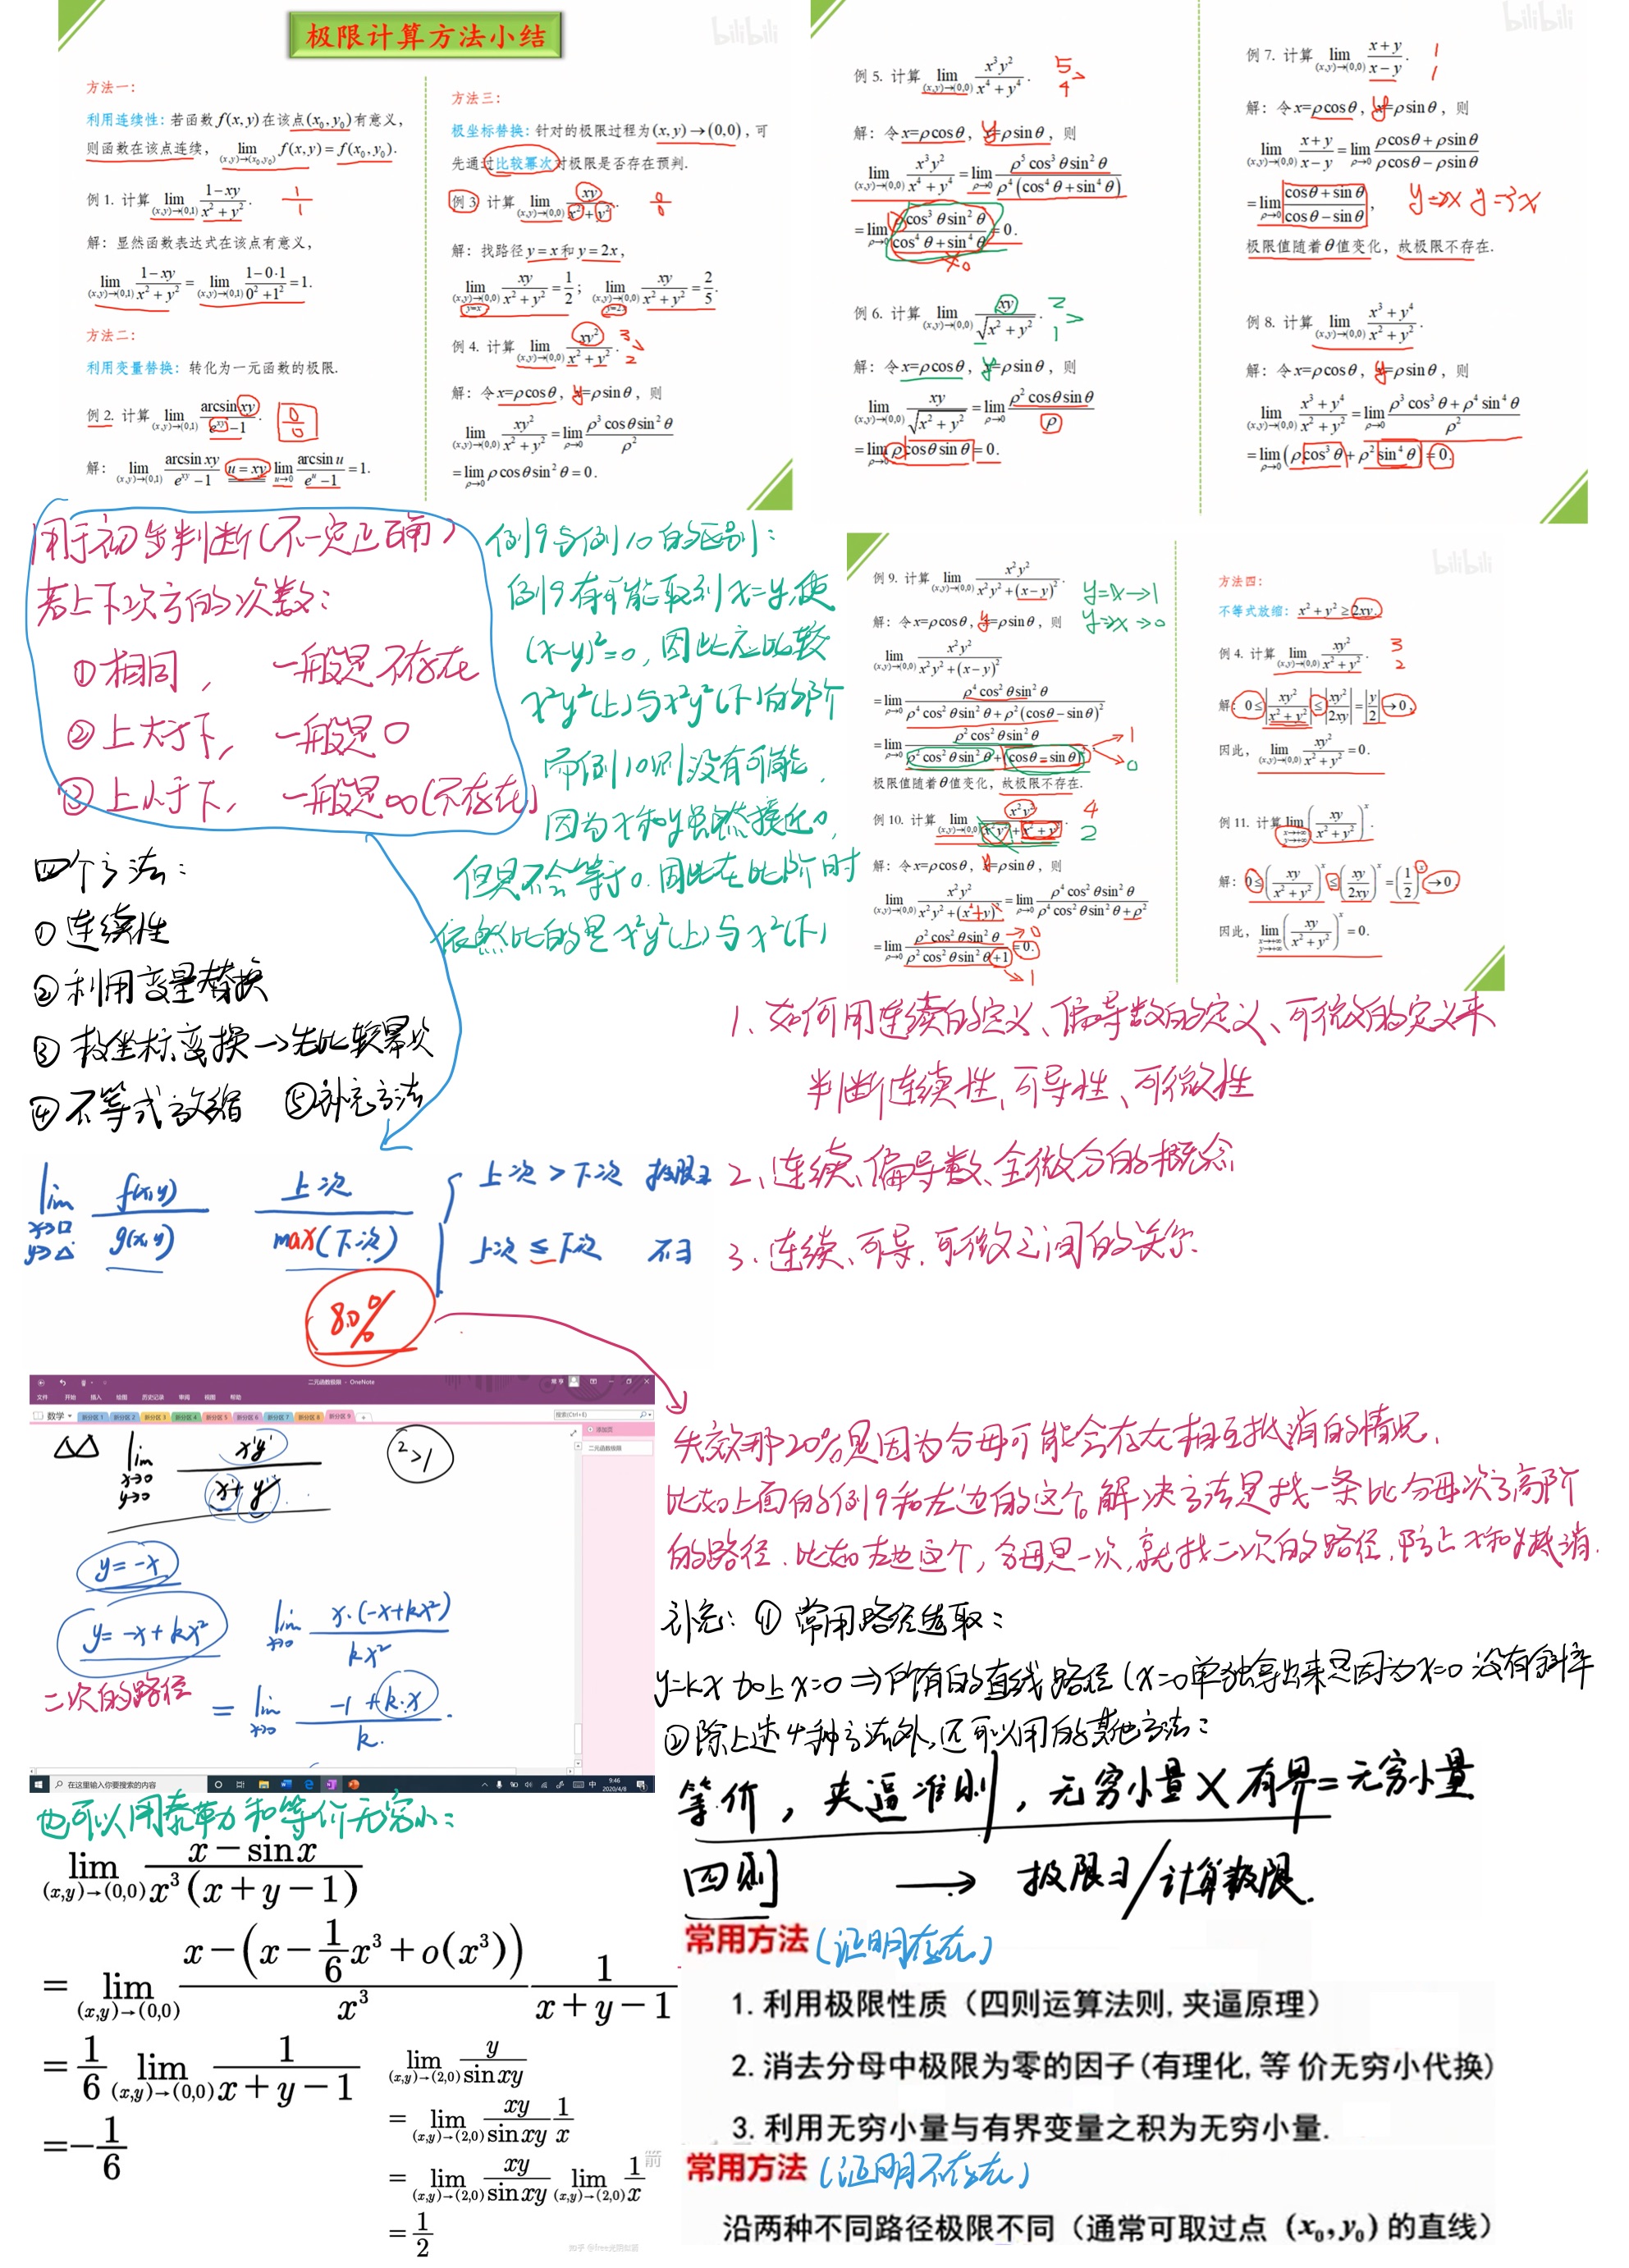 极限计算方法小结
bilibili
方法一:
利用连续性: 若函数 f(x,y) 在该点(x₀,y₀)有意义,
则函数在该点连续, lim_{(x,y)→(x₀,y₀)} f(x,y) = f(x₀,y₀).
例 1. 计算 lim_{(x,y)→(0,1)} (1-xy)/(x²+y²). 1/1
解: 显然函数表达式在该点有意义,
lim_{(x,y)→(0,1)} (1-xy)/(x²+y²) = lim_{(x,y)→(0,1)} (1-0·1)/(0²+1²) = 1.
方法二:
利用变量替换: 转化为一元函数的极限.
例 2. 计算 lim_{(x,y)→(0,1)} (arcsin xy)/(e^{xy}-1). 0/0
解: lim_{(x,y)→(0,1)} (arcsin xy)/(e^{xy}-1) u=xy lim_{u→0} (arcsin u)/(e^u-1) = 1.
方法三:
极坐标替换: 针对的极限过程为(x,y)→(0,0), 可
先通过比较幂次对极限是否存在预判.
例 3 计算 lim_{(x,y)→(0,0)} xy/(x²+y²). 0/0
解: 找路径 y=x 和 y=2x,
lim_{(x,y)→(0,0) y=x} xy/(x²+y²) = 1/2; lim_{(x,y)→(0,0) y=2x} xy/(x²+y²) = 2/5.
例 4. 计算 lim_{(x,y)→(0,0)} xy²/(x²+y²). 3 > 2
解: 令 x=ρcosθ, y=ρsinθ, 则
lim_{(x,y)→(0,0)} xy²/(x²+y²) = lim_{ρ→0} ρ³cosθsin²θ/ρ²
= lim_{ρ→0} ρcosθsin²θ = 0.
例 5. 计算 lim_{(x,y)→(0,0)} x³y²/(x⁴+y⁴). 5 > 4
解: 令 x=ρcosθ, y=ρsinθ, 则
lim_{(x,y)→(0,0)} x³y²/(x⁴+y⁴) = lim_{ρ→0} ρ⁵cos³θsin²θ/(ρ⁴(cos⁴θ+sin⁴θ))
= lim_{ρ→0} ρcos³θsin²θ/(cos⁴θ+sin⁴θ) = 0.
≠0
例 6. 计算 lim_{(x,y)→(0,0)} xy/√(x²+y²). 2 > 1
解: 令 x=ρcosθ, y=ρsinθ, 则
lim_{(x,y)→(0,0)} xy/√(x²+y²) = lim_{ρ→0} ρ²cosθsinθ/ρ
= lim_{ρ→0} ρcosθsinθ = 0.
bilibili
例 7. 计算 lim_{(x,y)→(0,0)} (x+y)/(x-y). 1 1
解: 令 x=ρcosθ, y=ρsinθ, 则
lim_{(x,y)→(0,0)} (x+y)/(x-y) = lim_{ρ→0} (ρcosθ+ρsinθ)/(ρcosθ-ρsinθ)
= lim_{ρ→0} (cosθ+sinθ)/(cosθ-sinθ), y=2x y=3x
极限值随着θ值变化, 故极限不存在.
例 8. 计算 lim_{(x,y)→(0,0)} (x³+y⁴)/(x²+y²).
解: 令 x=ρcosθ, y=ρsinθ, 则
lim_{(x,y)→(0,0)} (x³+y⁴)/(x²+y²) = lim_{ρ→0} (ρ³cos³θ+ρ⁴sin⁴θ)/ρ²
= lim_{ρ→0} (ρcos³θ+ρ²sin⁴θ) = 0.
用于初步判断(不一定正确)
若上下次方的次数:
①相同, 一般是不存在
②上大于下, 一般是0
③上小于下, 一般是∞(不存在)
例9与例10的区别:
例9有可能取到x=y,使
(x-y)²=0,因此应比较
x²y²(上)与x²y²(下)的阶
而例10则没有可能,
因为x和y虽然接近0,
但是不会等于0.因此在比阶时
依然比的是x²y²(上)与x²(下)
例 9. 计算 lim_{(x,y)→(0,0)} x²y²/(x²y²+(x-y)²). y=x→1
y=2x→0
解: 令 x=ρcosθ, y=ρsinθ, 则
lim_{(x,y)→(0,0)} x²y²/(x²y²+(x-y)²)
= lim_{ρ→0} ρ⁴cos²θsin²θ/(ρ⁴cos²θsin²θ+ρ²(cosθ-sinθ)²)
= lim_{ρ→0} ρ²cos²θsin²θ/(ρ²cos²θsin²θ+(cosθ-sinθ)²) →1 →0
极限值随着θ值变化, 故极限不存在.
例 10. 计算 lim_{(x,y)→(0,0)} x²y²/(x²y²+x²+y²). 4 2
解: 令 x=ρcosθ, y=ρsinθ, 则
lim_{(x,y)→(0,0)} x²y²/(x²y²+(x²+y)²) = lim_{ρ→0} ρ⁴cos²θsin²θ/(ρ⁴cos²θsin²θ+ρ²)
= lim_{ρ→0} ρ²cos²θsin²θ/(ρ²cos²θsin²θ+1) = 0. →0 →1
bilibili
方法四:
不等式放缩: x²+y²≥2xy.
例 4. 计算 lim_{(x,y)→(0,0)} xy²/(x²+y²). 3 2
解: 0≤|xy²/(x²+y²)|≤|xy²/2xy|=|y/2|→0,
因此, lim_{(x,y)→(0,0)} xy²/(x²+y²) = 0.
例 11. 计算 lim_{x→+∞ y→+∞} (xy/(x²+y²))^x.
解: 0≤(xy/(x²+y²))^x≤(xy/2xy)^x=(1/2)^x→0,
因此, lim_{x→+∞ y→+∞} (xy/(x²+y²))^x = 0.
四个方法:
①连续性
②利用变量替换
③极坐标变换→先比较幂次
④不等式放缩 ⑤补充方法
1、如何用连续的定义、偏导数的定义、可微的定义来
判断连续性、可导性、可微性
2、连续、偏导数、全微分的概念
3.连续、可导.可微之间的关系.
lim_{x→□ y→△} f(x,y)/g(x,y) 上次/max(下次)
上次>下次 极限∃
上次≤下次 不∃
80%
二元函数极限 - OneNote
文件 开始 插入 绘图 历史记录 审阅 视图 帮助
数学 新分区 1 新分区 2 新分区 3 新分区 4 新分区 5 新分区 6 新分区 7 新分区 8 新分区 9 +
搜索(Ctrl+E)
添加页
二元函数极限
△△ lim_{x→0 y→0} x¹y¹/(x¹+y¹) 2>1
y=-x
y=-x+kx² lim_{x→0} x·(-x+kx²)/kx²
二次的路径 = lim_{x→0} (-1+k·x)/k.
在这里输入你要搜索的内容
中 9:46
2020/4/8
失效那20%是因为分母可能会存在相互抵消的情况,
比如上面的例9和左边的这个。解决方法是找一条比分母次方高阶
的路径.比如左边这个,分母是一次,就找二次的路径,防止x和y抵消.
补充: ① 常用路径选取:
y=kx 加上 x=0 ⇒所有的直线路径(x=0单独拿出来是因为x=0没有斜率
②除上述4种方法外,还可以用的其他方法:
等价, 夹逼准则, 无穷小量×有界=无穷小量
四则 → 极限∃/计算极限.
也可以用泰勒和等价无穷小:
lim_{(x,y)→(0,0)} (x-sin x)/(x³(x+y-1))
= lim_{(x,y)→(0,0)} (x-(x-(1/6)x³+o(x³)))/x³ 1/(x+y-1)
= 1/6 lim_{(x,y)→(0,0)} 1/(x+y-1)
=-1/6
lim_{(x,y)→(2,0)} y/sin xy
= lim_{(x,y)→(2,0)} xy/sin xy 1/x
= lim_{(x,y)→(2,0)} xy/sin xy lim_{(x,y)→(2,0)} 1/x
= 1/2
箭
常用方法 (证明存在)
1. 利用极限性质（四则运算法则, 夹逼原理）
2. 消去分母中极限为零的因子(有理化, 等 价无穷小代换)
3. 利用无穷小量与有界变量之积为无穷小量.
常用方法 (证明不存在)
沿两种不同路径极限不同（通常可取过点 (x₀,y₀) 的直线）